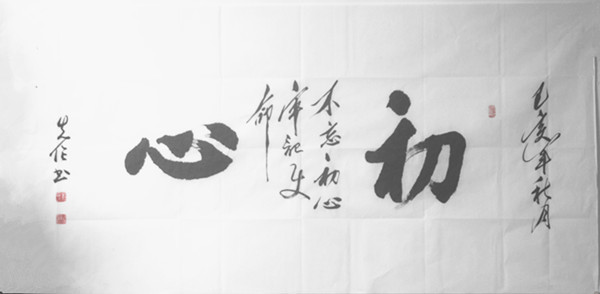 己亥年秋月
初
不忘初心
牢记使
命
心
先作书